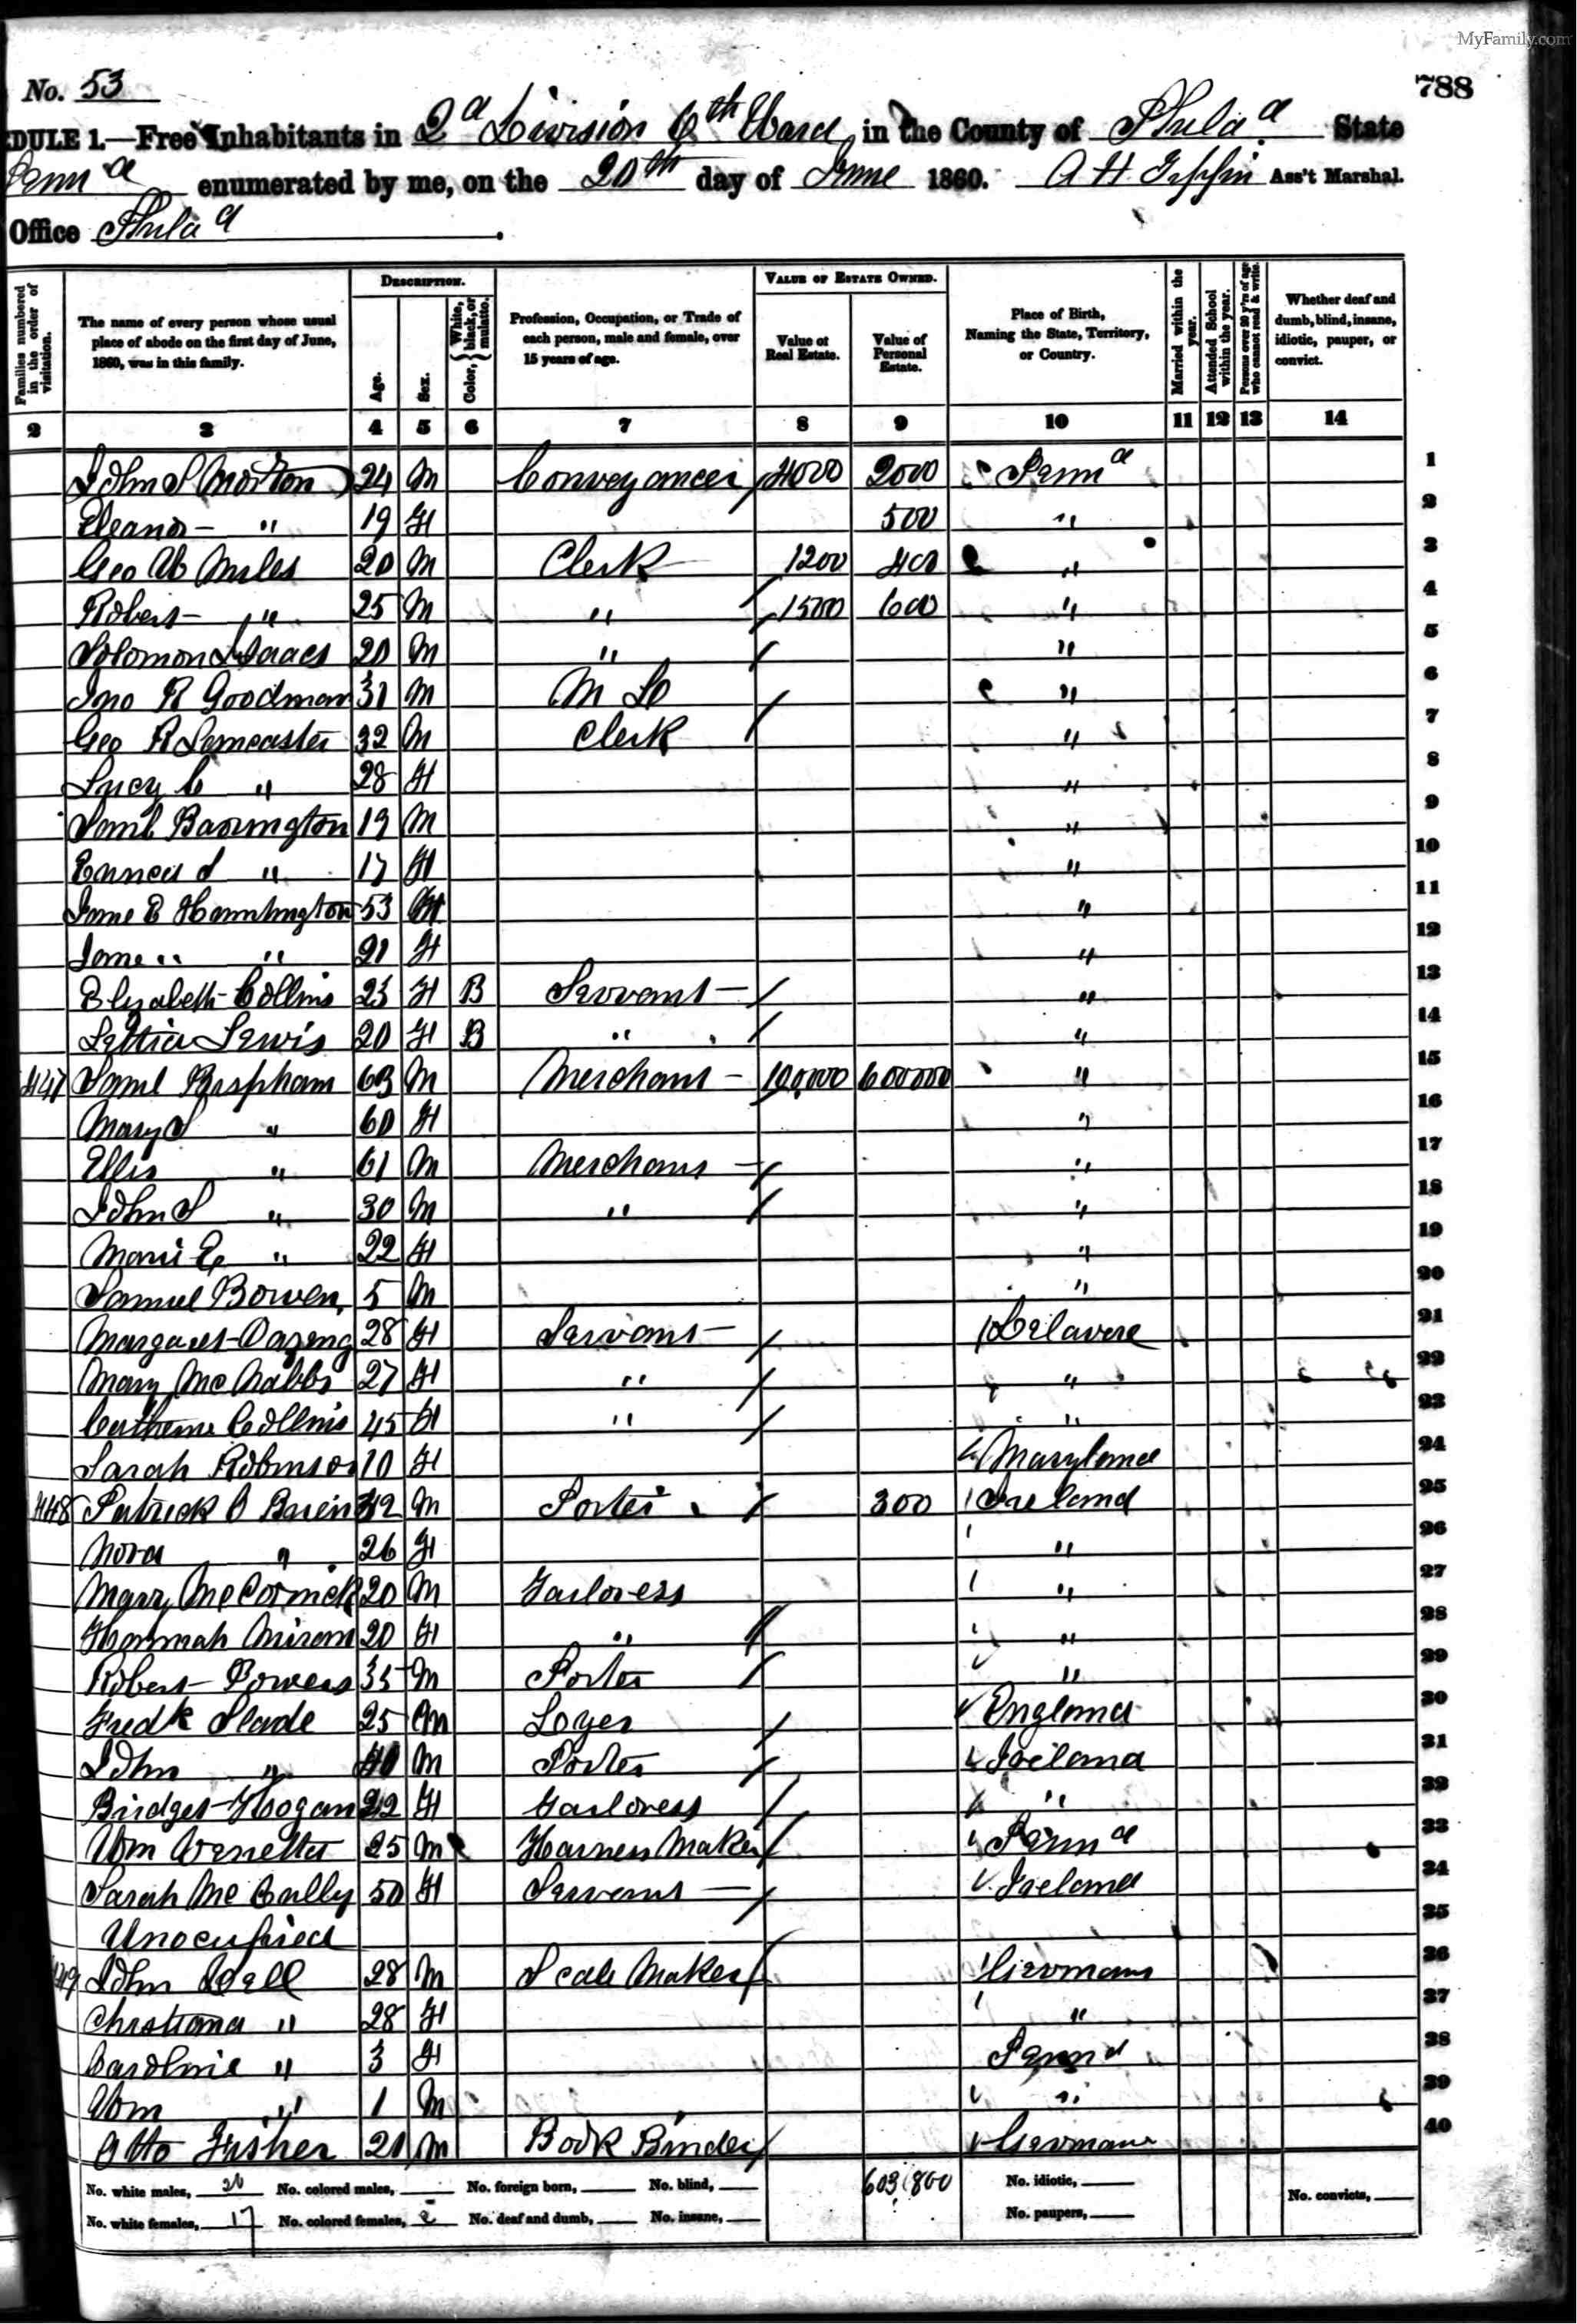 MyFamily.com
No. 53
788
EDULE 1.—Free Inhabitants in 2d Division 6th Ward in the County of Philad State
Penna enumerated by me, on the 20th day of June 1860. A H Ass't Marshal.
Office Philad
Families numbered in the order of visitation.
The name of every person whose usual place of abode on the first day of June, 1860, was in this family.
DESCRIPTION.
Age.
Sex.
Color, { White, black, or mulatto.
Profession, Occupation, or Trade of each person, male and female, over 15 years of age.
VALUE OF ESTATE OWNED.
Value of Real Estate.
Value of Personal Estate.
Place of Birth, Naming the State, Territory, or Country.
Married within the year.
Attended School within the year.
Persons over 20 y'rs of age who cannot read & write.
Whether deaf and dumb, blind, insane, idiotic, pauper, or convict.
2 3 4 5 6 7 8 9 10 11 12 13 14
John S Morton 24 M Conveyancer 4000 2000 Penna 1
Eleanor " 19 F 500 " 2
Geo W Miles 20 M Clerk 1200 400 " 3
Robert " 25 M " 1500 600 " 4
Solomon Isaacs 20 M " " 5
Jno R Goodman 31 M M D " 6
Geo R Lancaster 32 M Clerk " 7
Lucy C " 28 F " 8
Saml Barrington 19 M " 9
" 17 F " 10
Jane E 53 F " 11
Jane " " 21 F " 12
Elizabeth Collins 23 F B Servant " 13
Letitia Lewis 20 F B " " 14
447 Saml Bispham 63 M Merchant 100,000 600000 " 15
Mary S " 60 F " 16
Ellis " 61 M Merchant " 17
John S " 30 M " " 18
Marie E " 22 F " 19
Samuel Bowen 5 M " 20
Margaret 28 F Servant Delavere 21
Mary McNabbs 27 F " " 22
Catherine Collins 45 F " " 23
Sarah Robinson 10 F Maryland 24
448 Patrick O Brien 42 M Porter 300 Ireland 25
Nora " 26 F " 26
Mary McCormick 20 M Tailoress " 27
Hannah 20 F " " 28
Robert Powers 35 M Porter " 29
Fredk Slade 25 M England 30
John " 40 M Porter Ireland 31
Bridget Hogan 22 F Tailoress " 32
Wm 25 M Harness Maker Penna 33
Sarah McCally 50 F Servant Ireland 34
Unocupied 35
449 John 28 M Scale Maker Germany 36
Christiana " 28 F " 37
Caroline " 3 F Penna 38
Wm " 1 M " 39
Otto Fisher 21 M Book Binder Germany 40
No. white males, 20 No. colored males, No. foreign born, No. blind, 603,800 No. idiotic,
No. white females, 17 No. colored females, 2 No. deaf and dumb, No. insane, No. paupers, No. convicts,